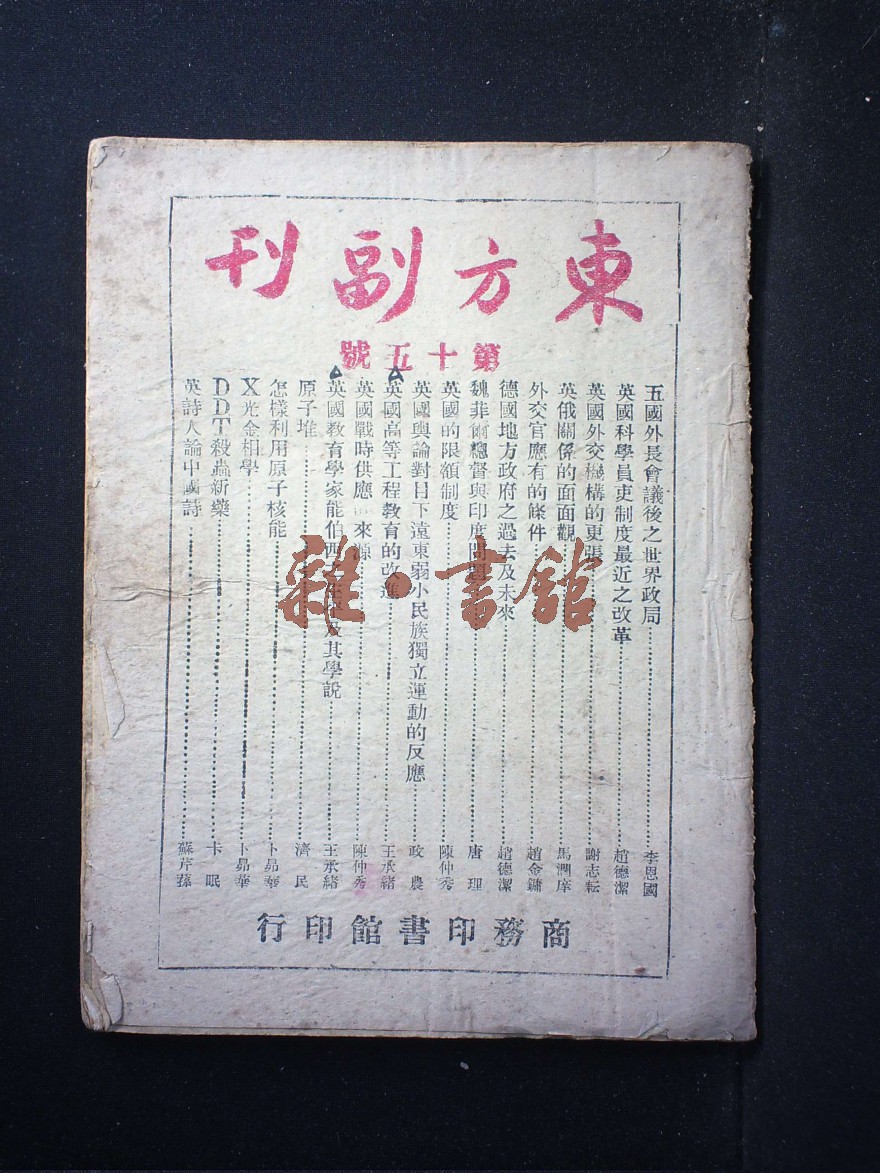 東方副刊
第十五號
五國外長會議後之世界政局……李恩國
英國科學員吏制度最近之改革……趙德潔
英國外交機構的更張……謝志耘
英俄關係的面面觀……馬潤庠
外交官應有的條件……趙金鏞
德國地方政府之過去及未來……趙德潔
魏菲爾總督與印度問題……唐理
英國的限額制度……陳仲秀
英國輿論對目下遠東弱小民族獨立運動的反應……政農
英國高等工程教育的改進……王承緒
英國戰時供應 來源……陳仲秀
英國教育學家能伯西 及其學說……王承緒
原子堆……濟民
怎樣利用原子核能……卜昂華
X光金相學……卜昂華
DDT殺蟲新藥……卡眠
英詩人論中國詩……蘇芹蓀
商務印書館印行
雜·書館